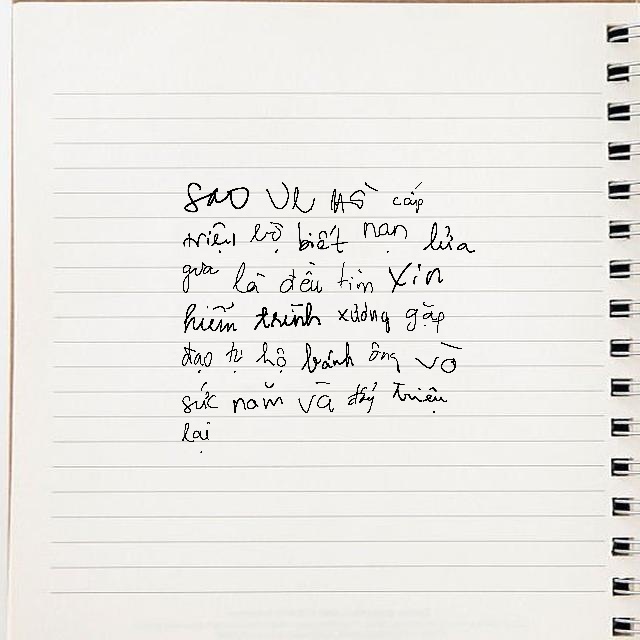 sao và hồ cấp
triệu bộ biết nạn lửa
qua là đều tìm xin
hiểm trình xưởng gặp
đạo tự hộ bánh ông vò
sức năm và đấy triệu
lại